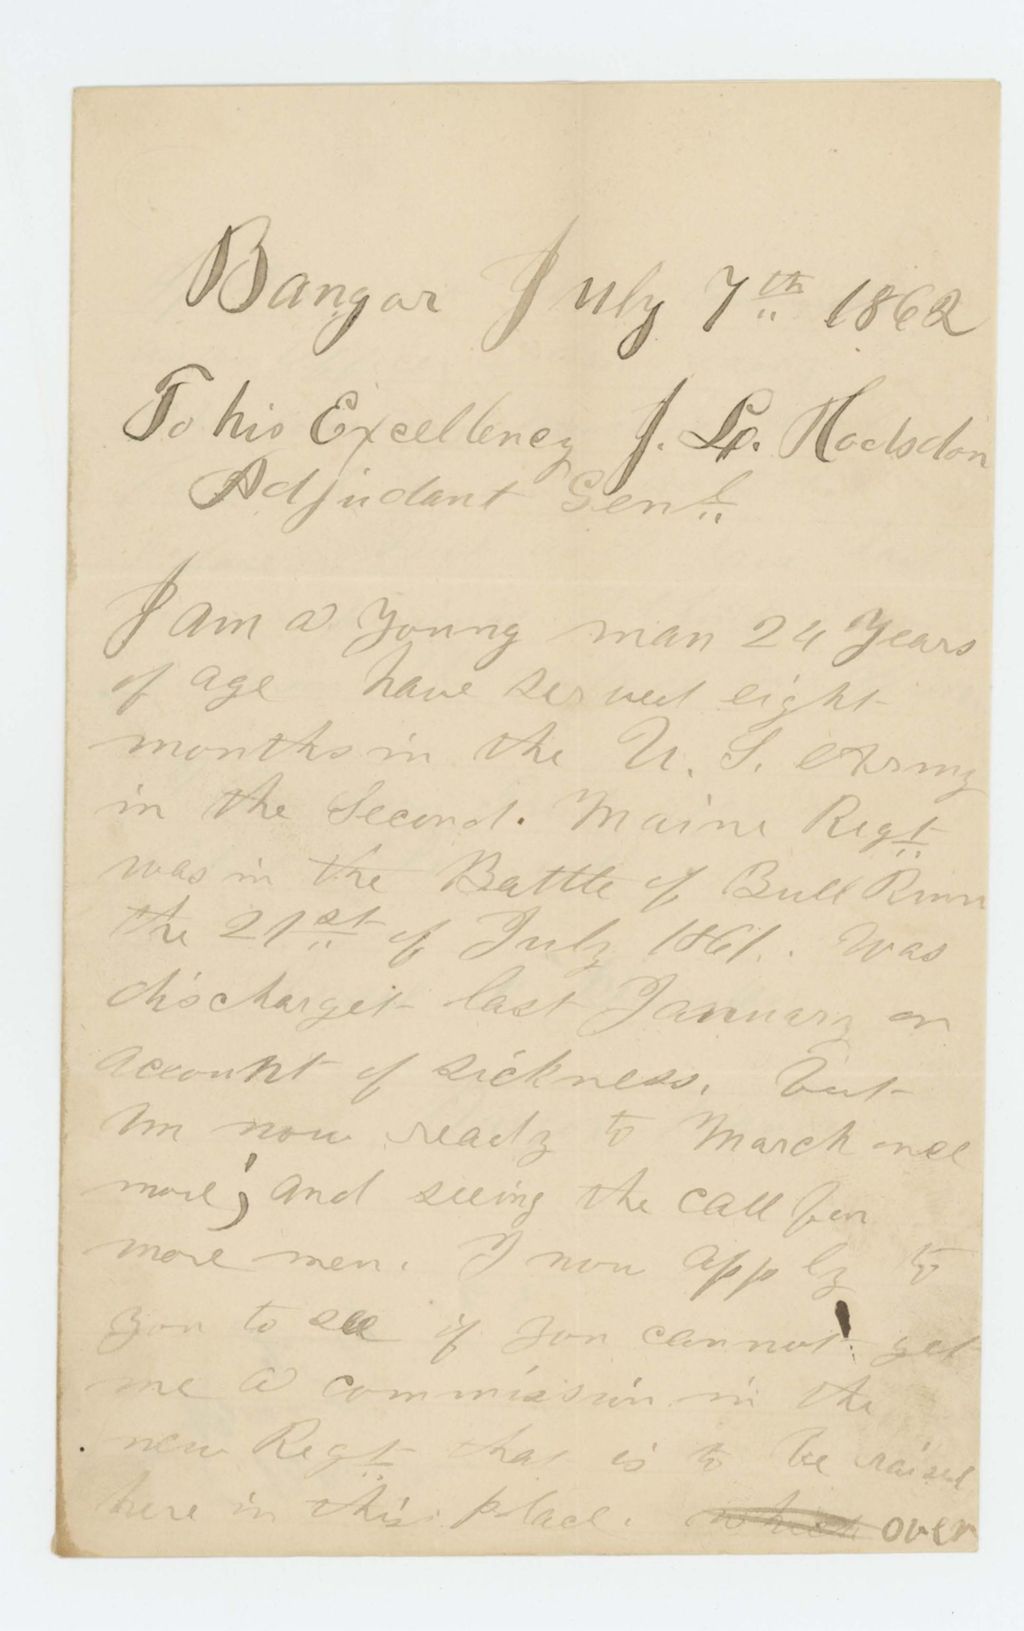 Bangor July 7th 1862
To his Excellency J. L. Hodsdon
Adjudant Genl
I am a Young man 24 Years
of age have served eight
months in the U. S. Army
in the Second. Maine Regt
was in the Battle of Bull Runn
the 21st of July 1861. Was
discharget last January on
account of sickness. but
Im now ready to March once
more, and seeing the call for
more men. I now apply to
you to see if you cannot get
me a commission in the
new Regt that is to be raised
here in this place. which over